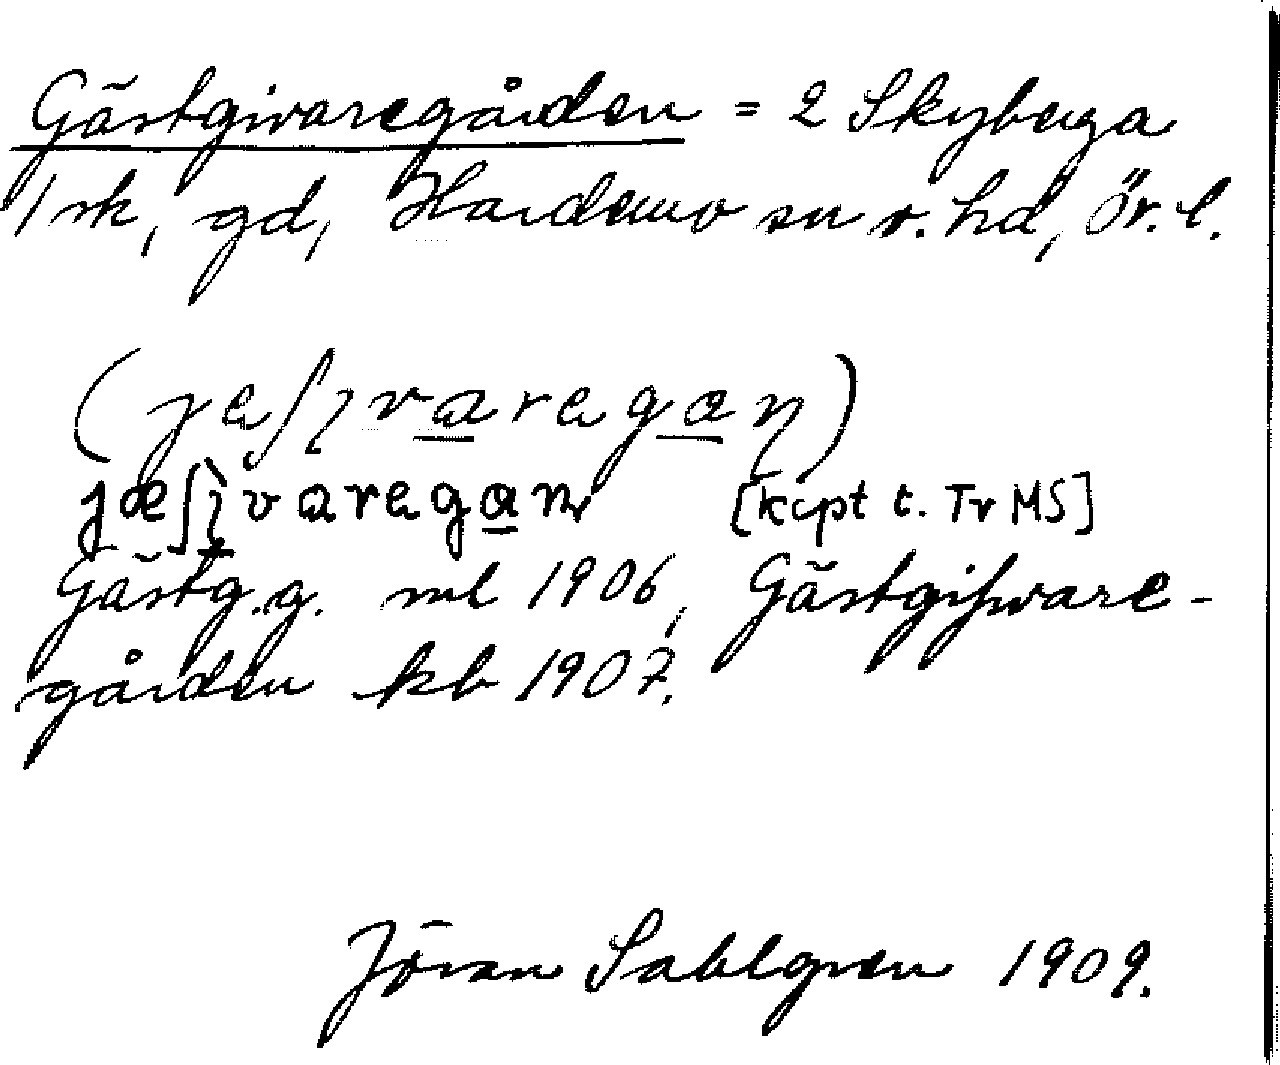 Gästgivaregården = 2 Skyberga
1 sk, gd, Hardemo sn v. hd, ör. l.
Gästg.g. ml 1906, Gästgifware-
gården kb 1907.
[kcpt t. Tr MS]
Jöran Sahlgren 1909.